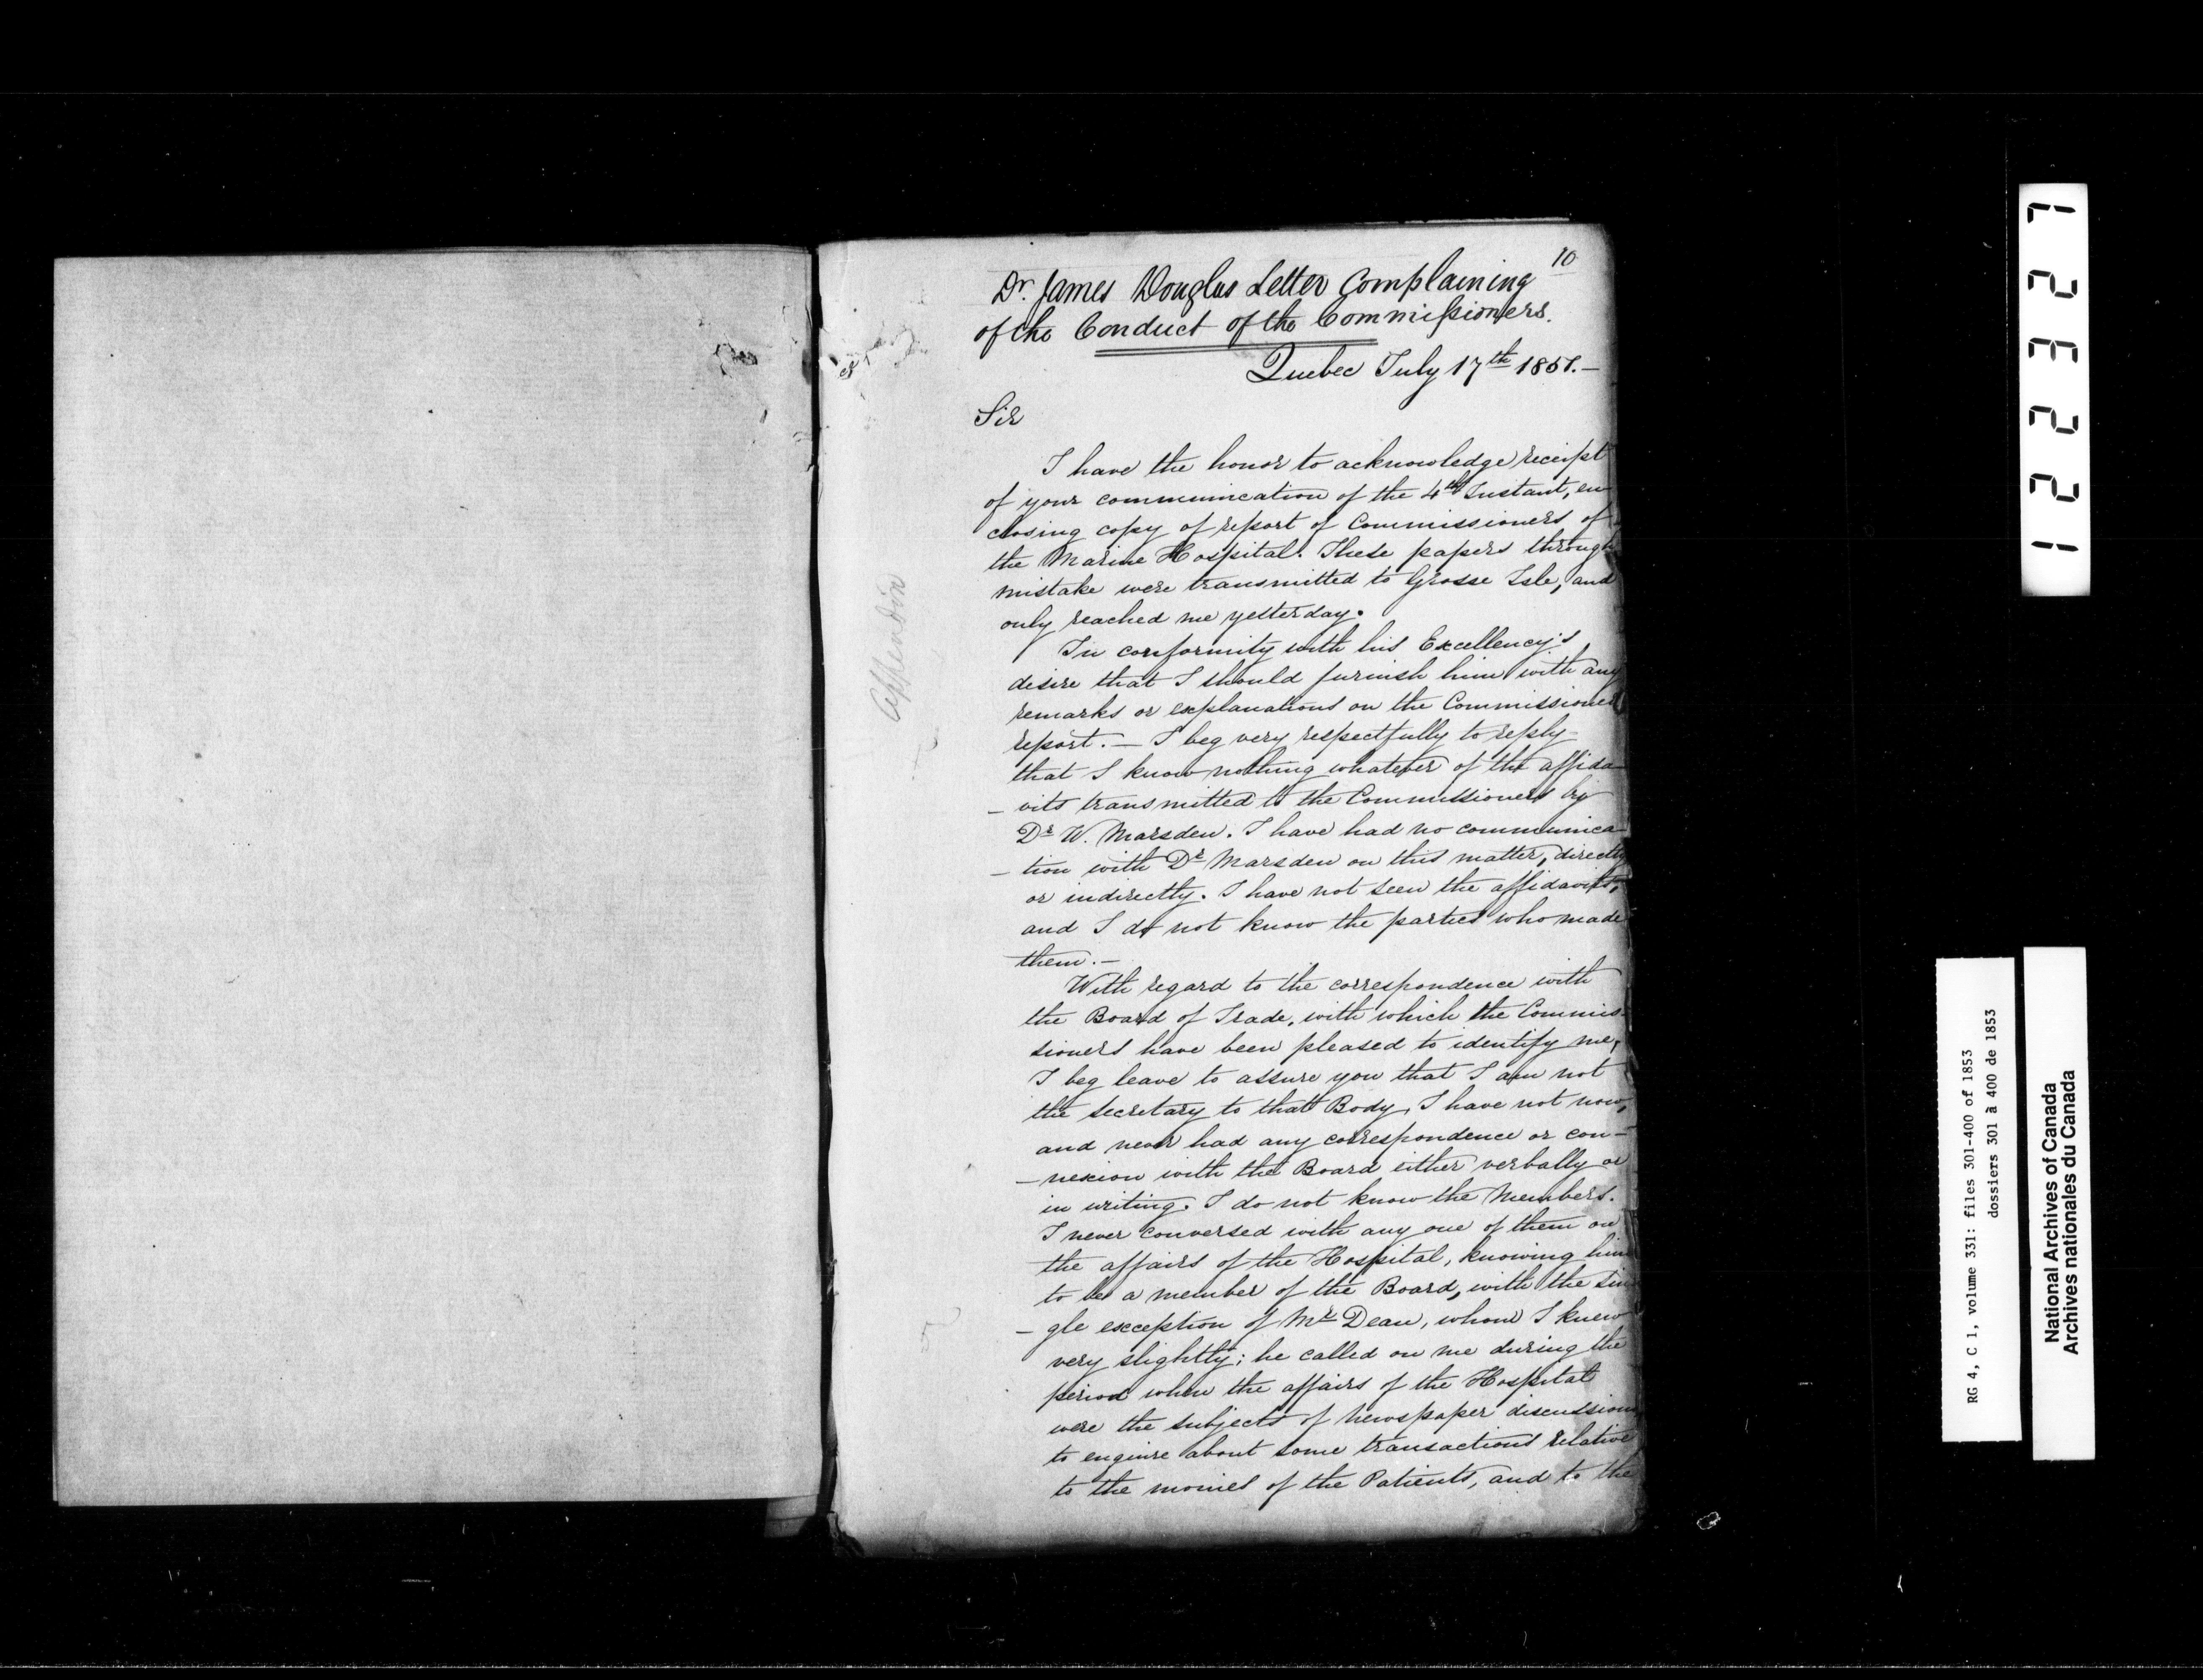 10
Dr. James Douglas Letter Complaining
of the Conduct of the Commissioners.
Quebec July 17th 1851.—
Sir
I have the honor to acknowledge receipt
of your communication of the 4th Instant, en
closing copy of report of Commissioners of
the Marine Hospital. These papers through
mistake were transmitted to Grosse Isle, and
only reached me yesterday.
In conformity with his Excellency's
desire that I should furnish him with any
remarks or explanations on the Commissioners
report. — I beg very respectfully to reply
that I know nothing whatever of the affida
— vits transmitted to the Commissioners by
Dr W. Marsden. I have had no communica
— tion with Dr Marsden on this matter, directly
or indirectly. I have not seen the affidavits,
and I do not know the parties who made
them. —
With regard to the correspondence with
the Board of Trade, with which the Commis-
sioners have been pleased to identify me,
I beg leave to assure you that I am not
the secretary to that Body, I have not now,
and never had any correspondence or con—
— nexion with the Board either verbally or
in writing. I do not know the Members.
I never conversed with any one of them on
the affairs of the Hospital, knowing him
to be a member of the Board, with the sin
— gle exception of Mr Dean, whom I knew
very slightly; he called on me during the
period when the affairs of the Hospital
were the subjects of newspaper discussion
to enquire about some transactions relative
to the monies of the Patients, and to the
Appendix
122327
RG 4, C 1, volume 331: files 301-400 of 1853
dossiers 301 à 400 de 1853
National Archives of Canada
Archives nationales du Canada